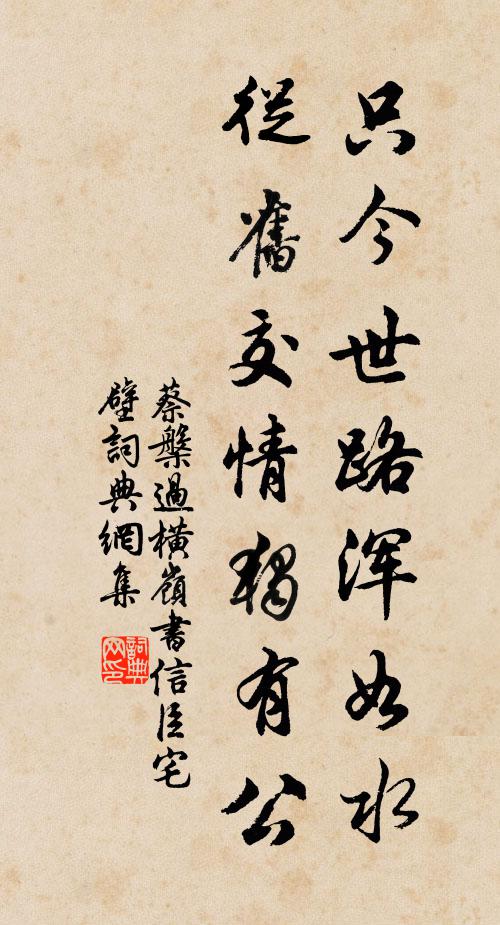 只今世路渾如水
從舊交情獨有公
蔡槃過橫嶺書信臣宅
壁詞典網集
詞典
网印